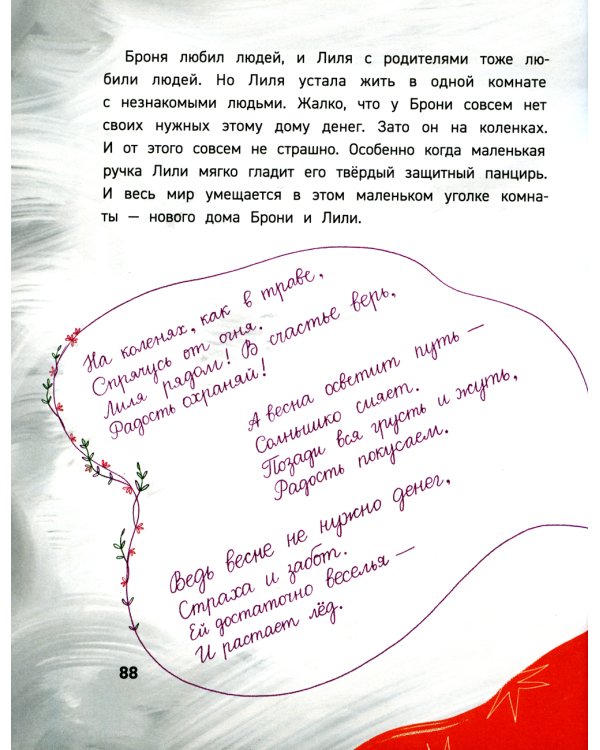 Броня любил людей, и Лиля с родителями тоже лю-
били людей. Но Лиля устала жить в одной комнате
с незнакомыми людьми. Жалко, что у Брони совсем нет
своих нужных этому дому денег. Зато он на коленках.
И от этого совсем не страшно. Особенно когда маленькая
ручка Лили мягко гладит его твёрдый защитный панцирь.
И весь мир умещается в этом маленьком уголке комна-
ты — нового дома Брони и Лили.
На коленях, как в траве,
Спрячусь от огня.
Лиля рядом! В счастье верь,
Радость охраняй!
А весна осветит путь —
Солнышко сияет.
Позади вся грусть и жуть,
Радость покусаем.
Ведь весне не нужно денег,
Страха и забот.
Ей достаточно веселья —
И растает лёд.
88